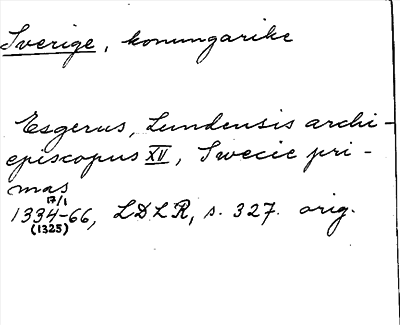 Sverige, konungarike
Esgerus, Lundensis archi-
episcopus XV, Swecie pri-
mas
17/1
1334-66, LDLR, s. 327. orig.
(1325)